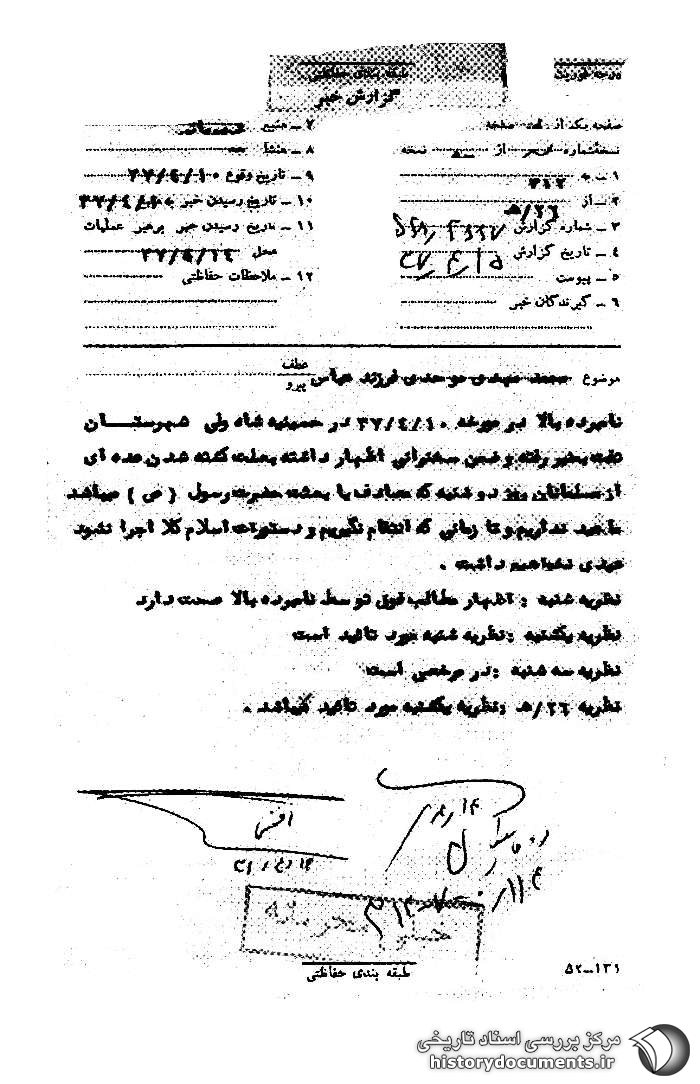 طبقه بندی حفاظتی
درجه فوریت
گزارش خبر
صفحه یک از صفحه
نسخه شماره از نسخه
۱ ـ به ۳۱۲
۲ ـ از ۲۶/هـ
۳ ـ شماره گزارش
۴ ـ تاریخ گزارش
۵ ـ پیوست
۶ ـ گیرندگان خبر
۷ ـ منبع
۸ ـ منشا
۹ ـ تاریخ وقوع ۳۷/۴/۱۰
۱۰ ـ تاریخ رسیدن خبر به منبع
۱۱ ـ تاریخ رسیدن خبر برهبر عملیات
محل ۳۷/۴/۱۴
۱۲ ـ ملاحظات حفاظتی
موضوع محمد مهدی موحدی فرزند عباس
عطف
پیرو
نامبرده بالا در مورخه ۳۷/۴/۱۰ در حسینیه شاه ولی شهرستان
تفت بمنبر رفته و ضمن سخنرانی اظهار داشته بعلت کشته شدن عده ای
از مسلمانان روز دوشنبه که مصادف با بعثت حضرت رسول (ص) میباشد
ما عید نداریم و تا زمانی که انتقام نگیریم و دستورات اسلام کلا اجرا نشود
عیدی نخواهیم داشت .
نظریه شنبه : اظهار مطالب فوق توسط نامبرده بالا صحت دارد
نظریه یکشنبه : نظریه شنبه مورد تائید است
نظریه سه شنبه : در مرخصی است
نظریه ۲۶/هـ : نظریه یکشنبه مورد تائید میباشد .
خیلی محرمانه
طبقه بندی حفاظتی
۵۲ـ۱۳۱
مرکز بررسی اسناد تاریخی
historydocuments.ir